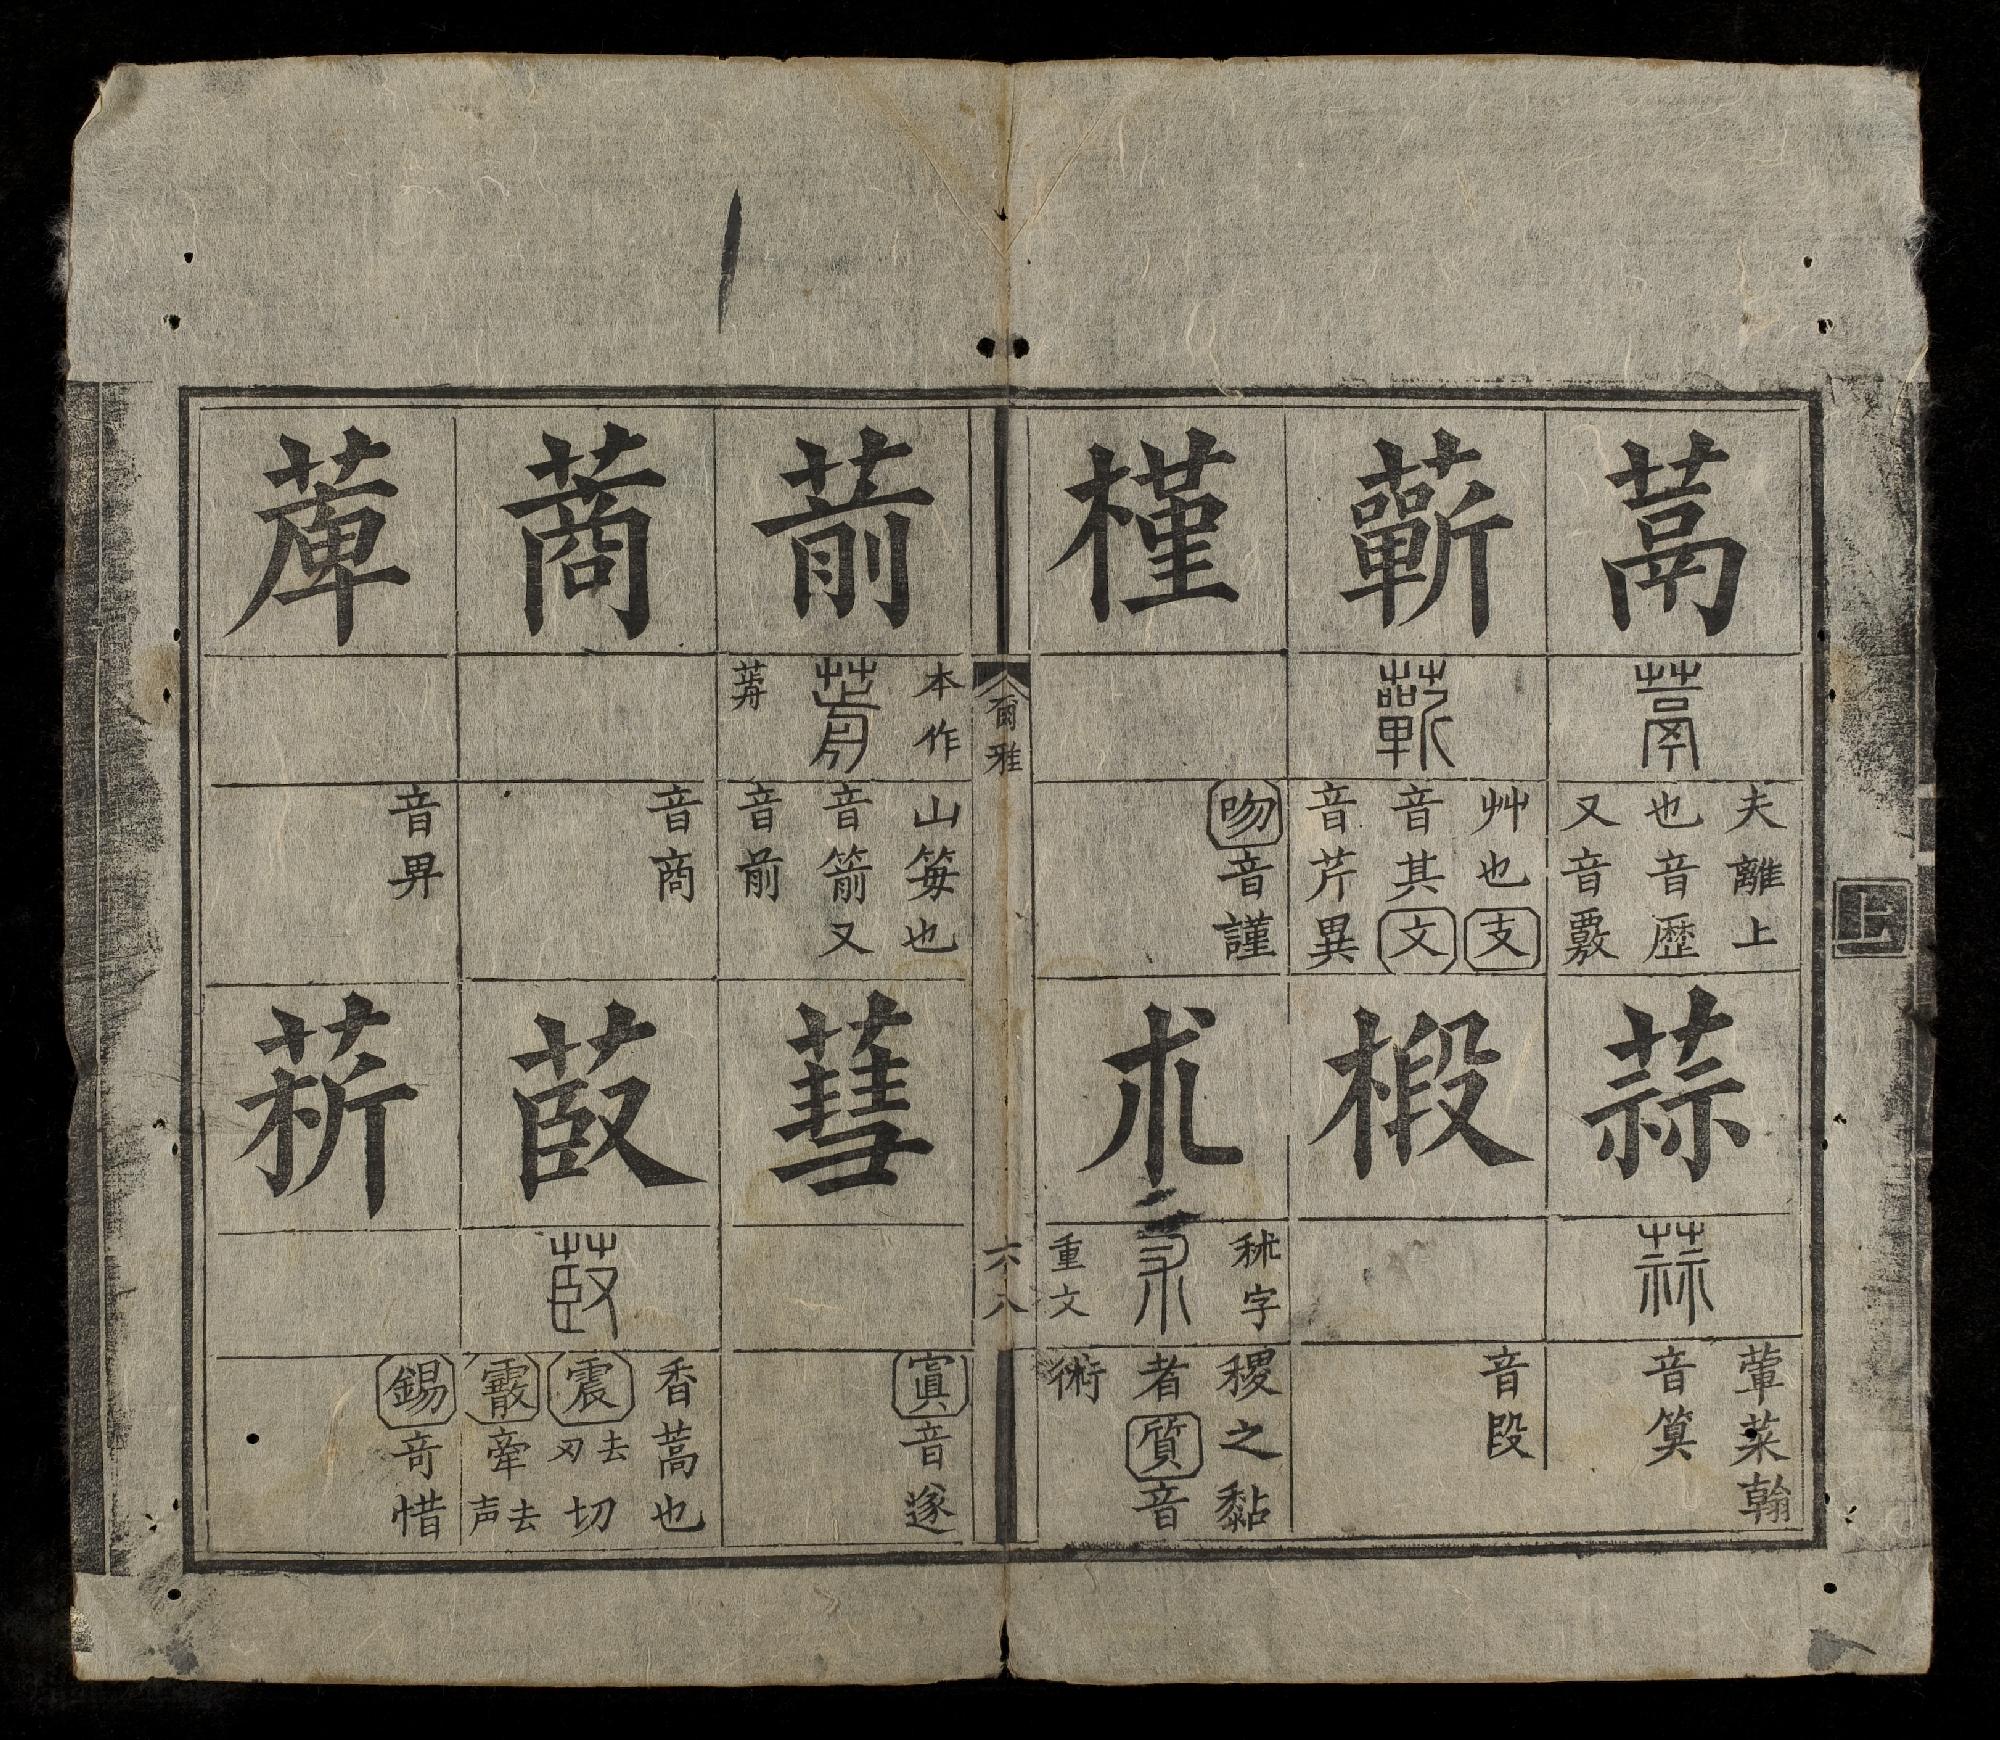 蒚
夫離上
也音歷
又音覈
蒜
葷菜翰
音筭
蘄
艸也支
音其文
音芹異
椴
音段
槿
吻音謹
朮
秫字
重文
稷之黏
者質音
術
爾雅
六八
葥
本作
山莓也
音箭又
音前
蔧
寘音遂
蔏
音商
菣
香蒿也
震去刃切
霰牽去声
音畀
菥
錫竒惜
上